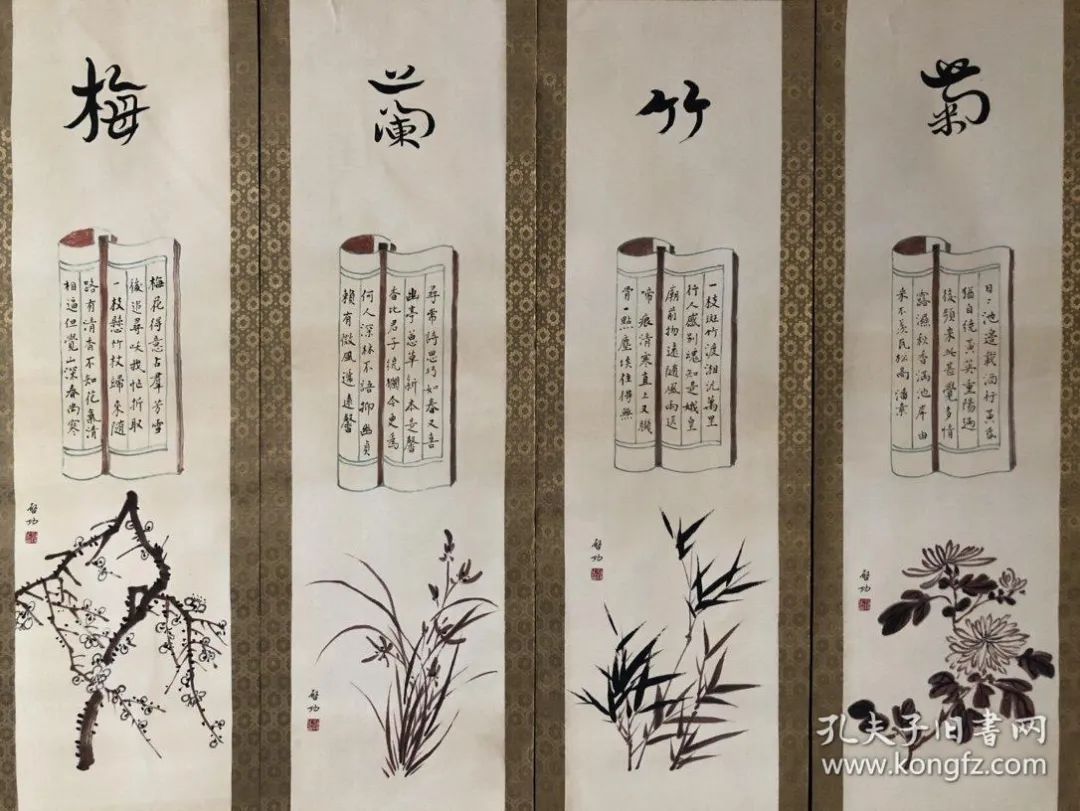 梅
梅花得意占羣芳雪
後追尋咲我忙折取
一枝懸竹杖歸來隨
路有清香不知花氣清
相逼但覺山深春尚寒
啓功
蘭
尋常詩思巧如春又喜
幽亭蕙草新本是馨
香比君子繞欄今更為
何人深林不語抱幽貞
賴有微風遞遠馨
啓功
竹
一枝斑竹渡湘沅萬里
行人感別魂知是娥皇
廟前物遠隨風雨送
啼痕清寒直上
骨一點塵埃住得無
啓功
菊
日〻池邊載酒行黃昏
猶自繞黃英重陽過
後頻來此甚覺多情
露濕秋香滿池岸由
來不羨瓦松高
啓功
孔夫子旧书网
www.kongfz.com